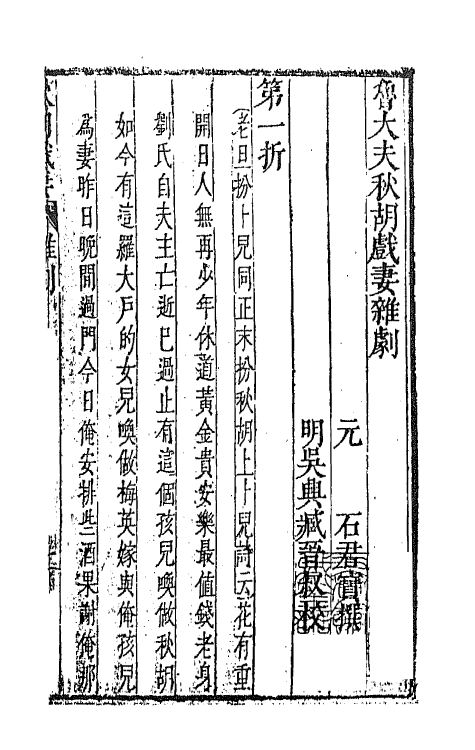 魯大夫秋胡戲妻雜劇
元　石君寶撰
明吳興臧晉叔校
第一折
（老旦扮卜兒同正末扮秋胡上卜兒詩云）花有重
開日人無再少年休道黃金貴安樂最值錢老身
劉氏自夫主亡逝已過止有這個孩兒喚做秋胡
如今有這羅大戶的女兒喚做梅英嫁與俺孩兒
為妻昨日晚間過門今日俺安排些酒果謝俺那